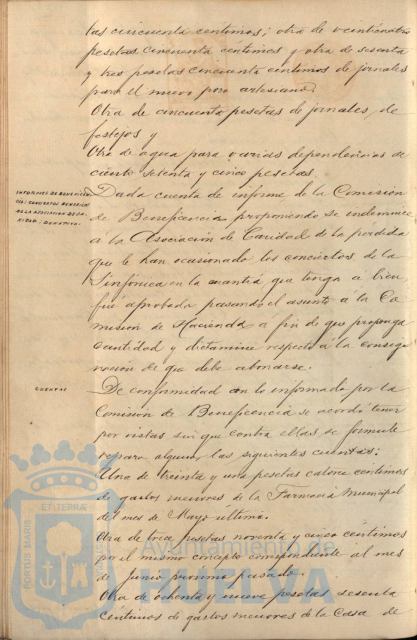 tas cincuenta centimos; otra de veinticuatro
pesetas cincuenta centimos y otra de sesenta
y tres pesetas cincuenta centimos de jornales
para el nuevo pozo artesiano.
Otra de cincuenta pesetas de jornales de
festejos y
Otra de agua para varias dependencias de
ciento setenta y cinco pesetas.
INFORMES DE BENEFICEN
CIA: CONCIERTOS BENEFICIO
DE LA ASOCIACION DE CA
RIDAD: DONATIVO.
Dada cuenta de informe de la Comisión
de Beneficencia proponiendo se indemnice
a la Asociacion de Caridad de la perdida
que le han ocasionado los conciertos de la
Sinfónica en la cuantia que tenga a bien
fué aprobada pasando el asunto á la Co
mision de Hacienda a fin de que proponga
cantidad y dictamine respecto á la consig
nacion de que debe abonarse.
CUENTAS
De conformidad con lo informado por la
Comisión de Beneficencia se acordó tener
por vistas sin que contra ellas se formule
reparo alguno, las siguientes cuentas:
Una de treinta y una pesetas catorce centimos
de gastos menores de la Farmacia Municipal
del mes de Mayo último.
Otra de trece pesetas noventa y cinco centimos
por el mismo concepto correspondiente al mes
de Junio proximo pasado.
Otra de ochenta y nueve pesetas sesenta
centimos de gastos menores de la Casa de
PORTUS MARIS ET TERRÆ
Ayuntamiento de